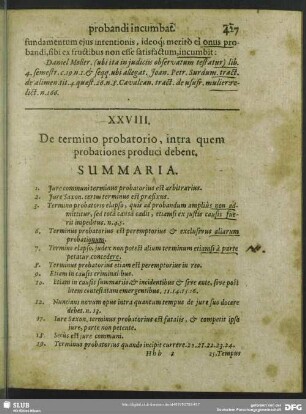 probandi incumbat. 427
fundamentum ejus intentionis, ideoq́; meritò ei onus pro-
bandi, sibi ex fructibus non esse satisfactum, incumbit:
Daniel Moller. (ubi ita in judiciis observatum testatur) lib.
4. semestr. c. 19 n. 1. & seqq. ubi allegat. Joan. Petr. Surdum. tract.
de alimen. tit. 4. quæst. 26. n. 3. Cavalcan. tract. de usufr. mulier re-
lict. n. 166.
XXVIII.
De termino probatorio, intra quem
probationes produci debent,
SUMMARIA.
1. Jure communi terminus probatorius est arbitrarius.
2. Jure Saxon. certus terminus est præfixus.
3. Termino probatorio elapso, quis ad probandum ampliùs non ad-
mittitur, sed totâ causâ cadit, etiamsi ex justis causis fue-
rit impeditus. n. 4. 5.
6. Terminus probatorius est peremptorius & exclusivus aliarum
probationum.
7. Termino elapso, judex non potest alium terminum etiamsi à parte
petatur concedere.
8. Terminus probatorius etiam est peremptorius in reo.
9. Etiam in causis criminalibus.
10. Etiam in causis summariis & incidentibus sive ante, sive post
litem contestatam emergentibus. 11. 14. 15. 16.
12. Nuntiatio novum opus intra quantum tempus de jure suo docere
debet. n. 13.
17. Jure Saxon. terminus probatorius est fatalis, & competit ipso
jure, parte non petente.
18. Secus est jure communi.
19. Terminus probatorius quando incipit currere. 21. 22. 23. 24.
Hhh 2 25. Tempus
SLUB
DFG